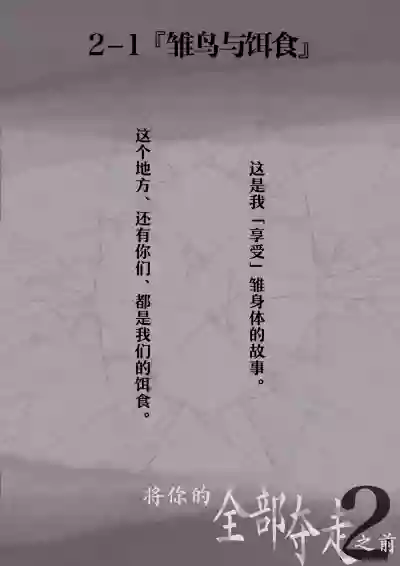 2-1『雏鸟与饵食』
这是我「享受」雏身体的故事。
这个地方、还有你们、都是我们的饵食。
将你的全部夺走之前2